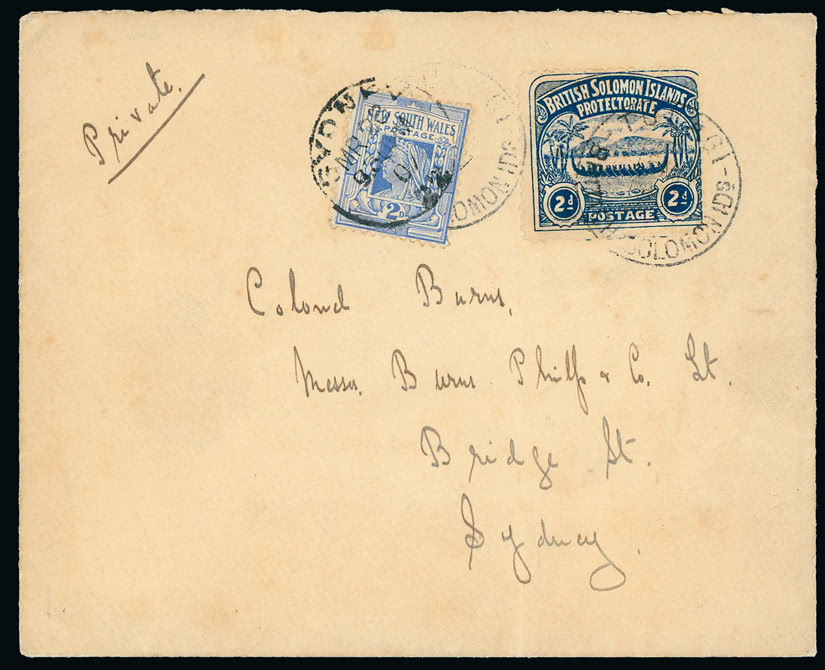 Private.
SYDNEY
MR
01
NEW SOUTH WALES
POSTAGE
2D
SOLOMON IDS
BRITISH SOLOMON ISLANDS
PROTECTORATE
2d POSTAGE 2d
SOLOMON IDS
Colonel Burns,
Messrs. Burns Philp & Co. Lt.
Bridge St.
Sydney.